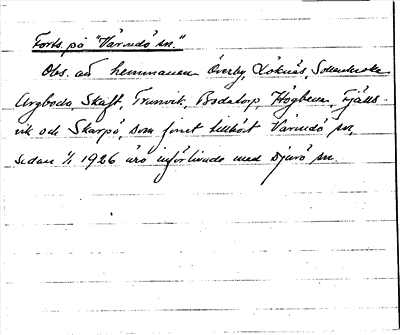 Forts. på "Värmdö sn."
Obs. att hemmanen Överby, Löknäs, Sollenkroka
Ängboda, Skaft, Trunsvik, Bodatorp, Högbena, Fjälls-
vik och Skarpö, som förut tillhört Värmdö sn,
sedan 1/1 1926 äro införlivade med Djurö sn.